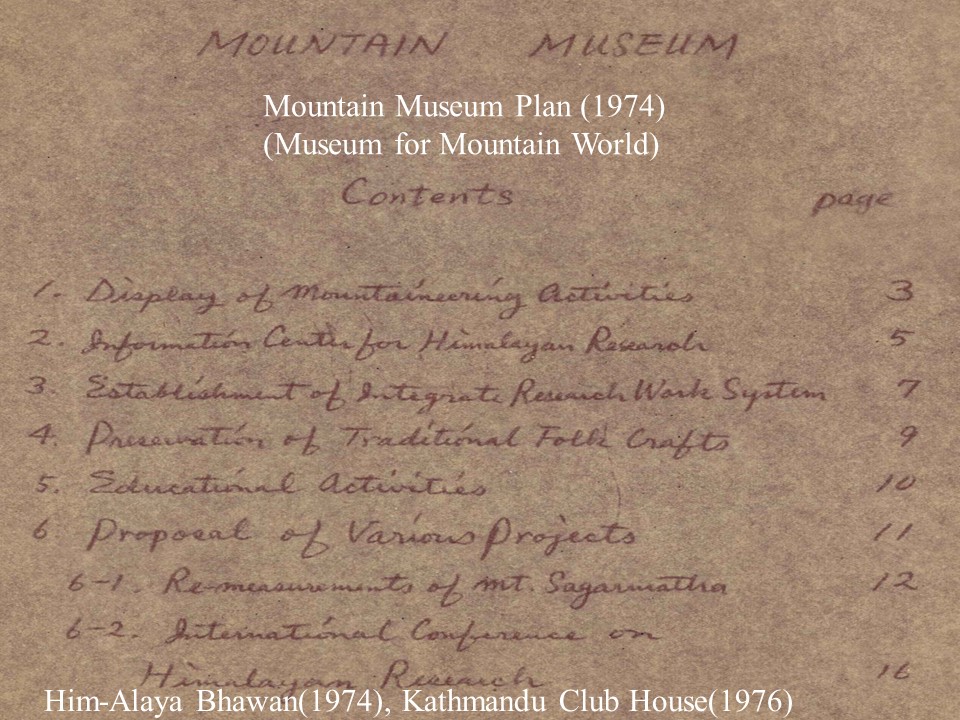 MOUNTAIN MUSEUM
Mountain Museum Plan (1974)
(Museum for Mountain World)
Contents page
1. Display of Mountaineering Activities 3
2. Information Center for Himalayan Research 5
3. Establishment of Integrate Research Work System 7
4. Preservation of Traditional Folk Crafts 9
5. Educational Activities 10
6 Proposal of Various Projects 11
6-1. Re-measurements of Mt. Sagarmatha 12
6-2. International Conference on
Himalayan Research 16
Him-Alaya Bhawan(1974), Kathmandu Club House(1976)